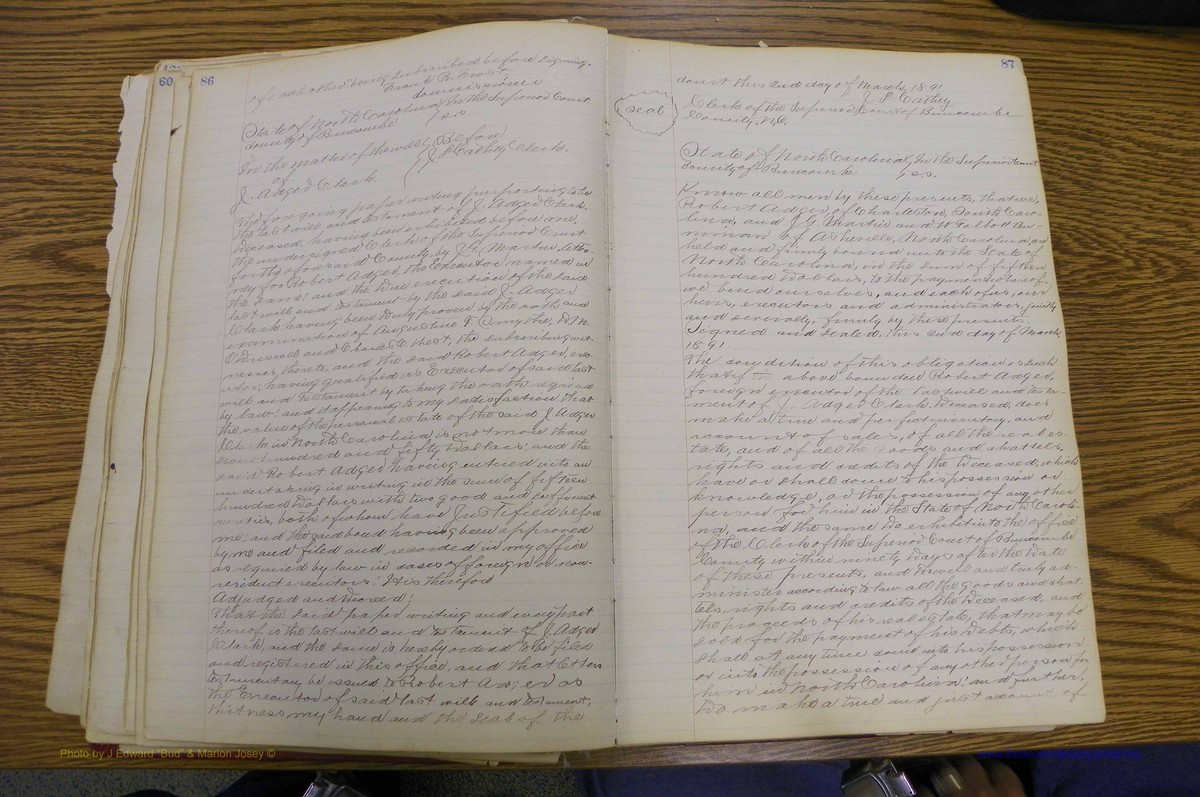 60
86
of each other being subscribed before signing.
Frank R. Frost
Commissioner
State of North Carolina In the Superior Court
County of Buncombe s.s.
In the matter of the will Before
of J S Cathey Clerk.
J. Adger Clark
The foregoing paper writing purporting to be
the last will and testament of J. Adger Clark
deceased, having been exhibited before me,
the undersigned Clerk of the Superior Court
for the aforesaid County, by J. G. Martin, Attor-
ney for Robert Adger the Executor named in
the same: and the due execution of the said
last will and testament by the said J. Adger
Clark having been duly proven by the oath and
examination of Augustine T. Smythe, W. M.
O'Driscoll and Charles C. West, the subscribing wit-
nesses thereto, and the said Robert Adger, exe-
cutor, having qualified as Executor of said last
will and testament by taking the oath required
by law: and it appearing to my satisfaction that
the value of the personal estate of the said J. Adger
Clark in North Carolina, is not more than
hundred and fifty Dollars: and the
said Robert Adger having entered into an
undertaking in writing in the sum of fifteen
hundred Dollars with two good and sufficient
sureties, both of whom have Justified before
me: and the said bond having been approved
by me and filed and recorded in my office
as required by law in cases of foreign or non-
resident executors: It is therefore
Adjudged and Decreed:
that the said paper writing and every part
thereof is the last will and testament of J. Adger
Clark, and the same is hereby ordered to be filed
and registered in this office, and that letters
testamentary be issued to Robert Adger as
the Executor of said last will and testament,
Witness my hand and the seal of the
87
Court this 2nd day of March, 1891
seal
J S Cathey
Clerk of the Superior Court of Buncombe
County, N.C.
State of North Carolina In the Superior Court
County of Buncombe s.s.
Know all men by these presents, that we,
Robert Adger of Charleston, South Caro-
lina, and J. G. Martin and W. Talbott Pen-
niman of Asheville, North Carolina, are
held and firmly bound unto the State of
North Carolina, in the sum of fifteen
hundred Dollars, to the payment whereof,
we bind ourselves, and each of us, our
heirs, executors and administrators, jointly
and severally, firmly by these presents.
Signed and sealed, this 2nd day of March,
1891.
The condition of this obligation is such
that if above bounden Robert Adger,
foreign executor of the last will and testa-
ment of J. Adger Clark, Deceased, does
make a true and perfect inventory, and
account of sales, of all the real es-
tate, and of all the goods and chattels,
rights and credits of the Deceased, which
have or shall come to his possession or
knowledge, or the possession of any other
person for him in the State of North Caroli-
na, and the same do exhibit into the office
of the Clerk of the Superior Court of Buncombe
County within ninety days after the date
of these presents, and do well and truly ad-
minister according to law all the goods and chat-
tels, rights and credits of the Deceased, and
the proceeds of his real estate, that may be
sold for the payment of his Debts, which
shall at any time come into his possession
or into the possession of any other person for
him in North Carolina: and further,
do make a true and just account of
Photo by J Edward "Bud" & Marion Josey ©